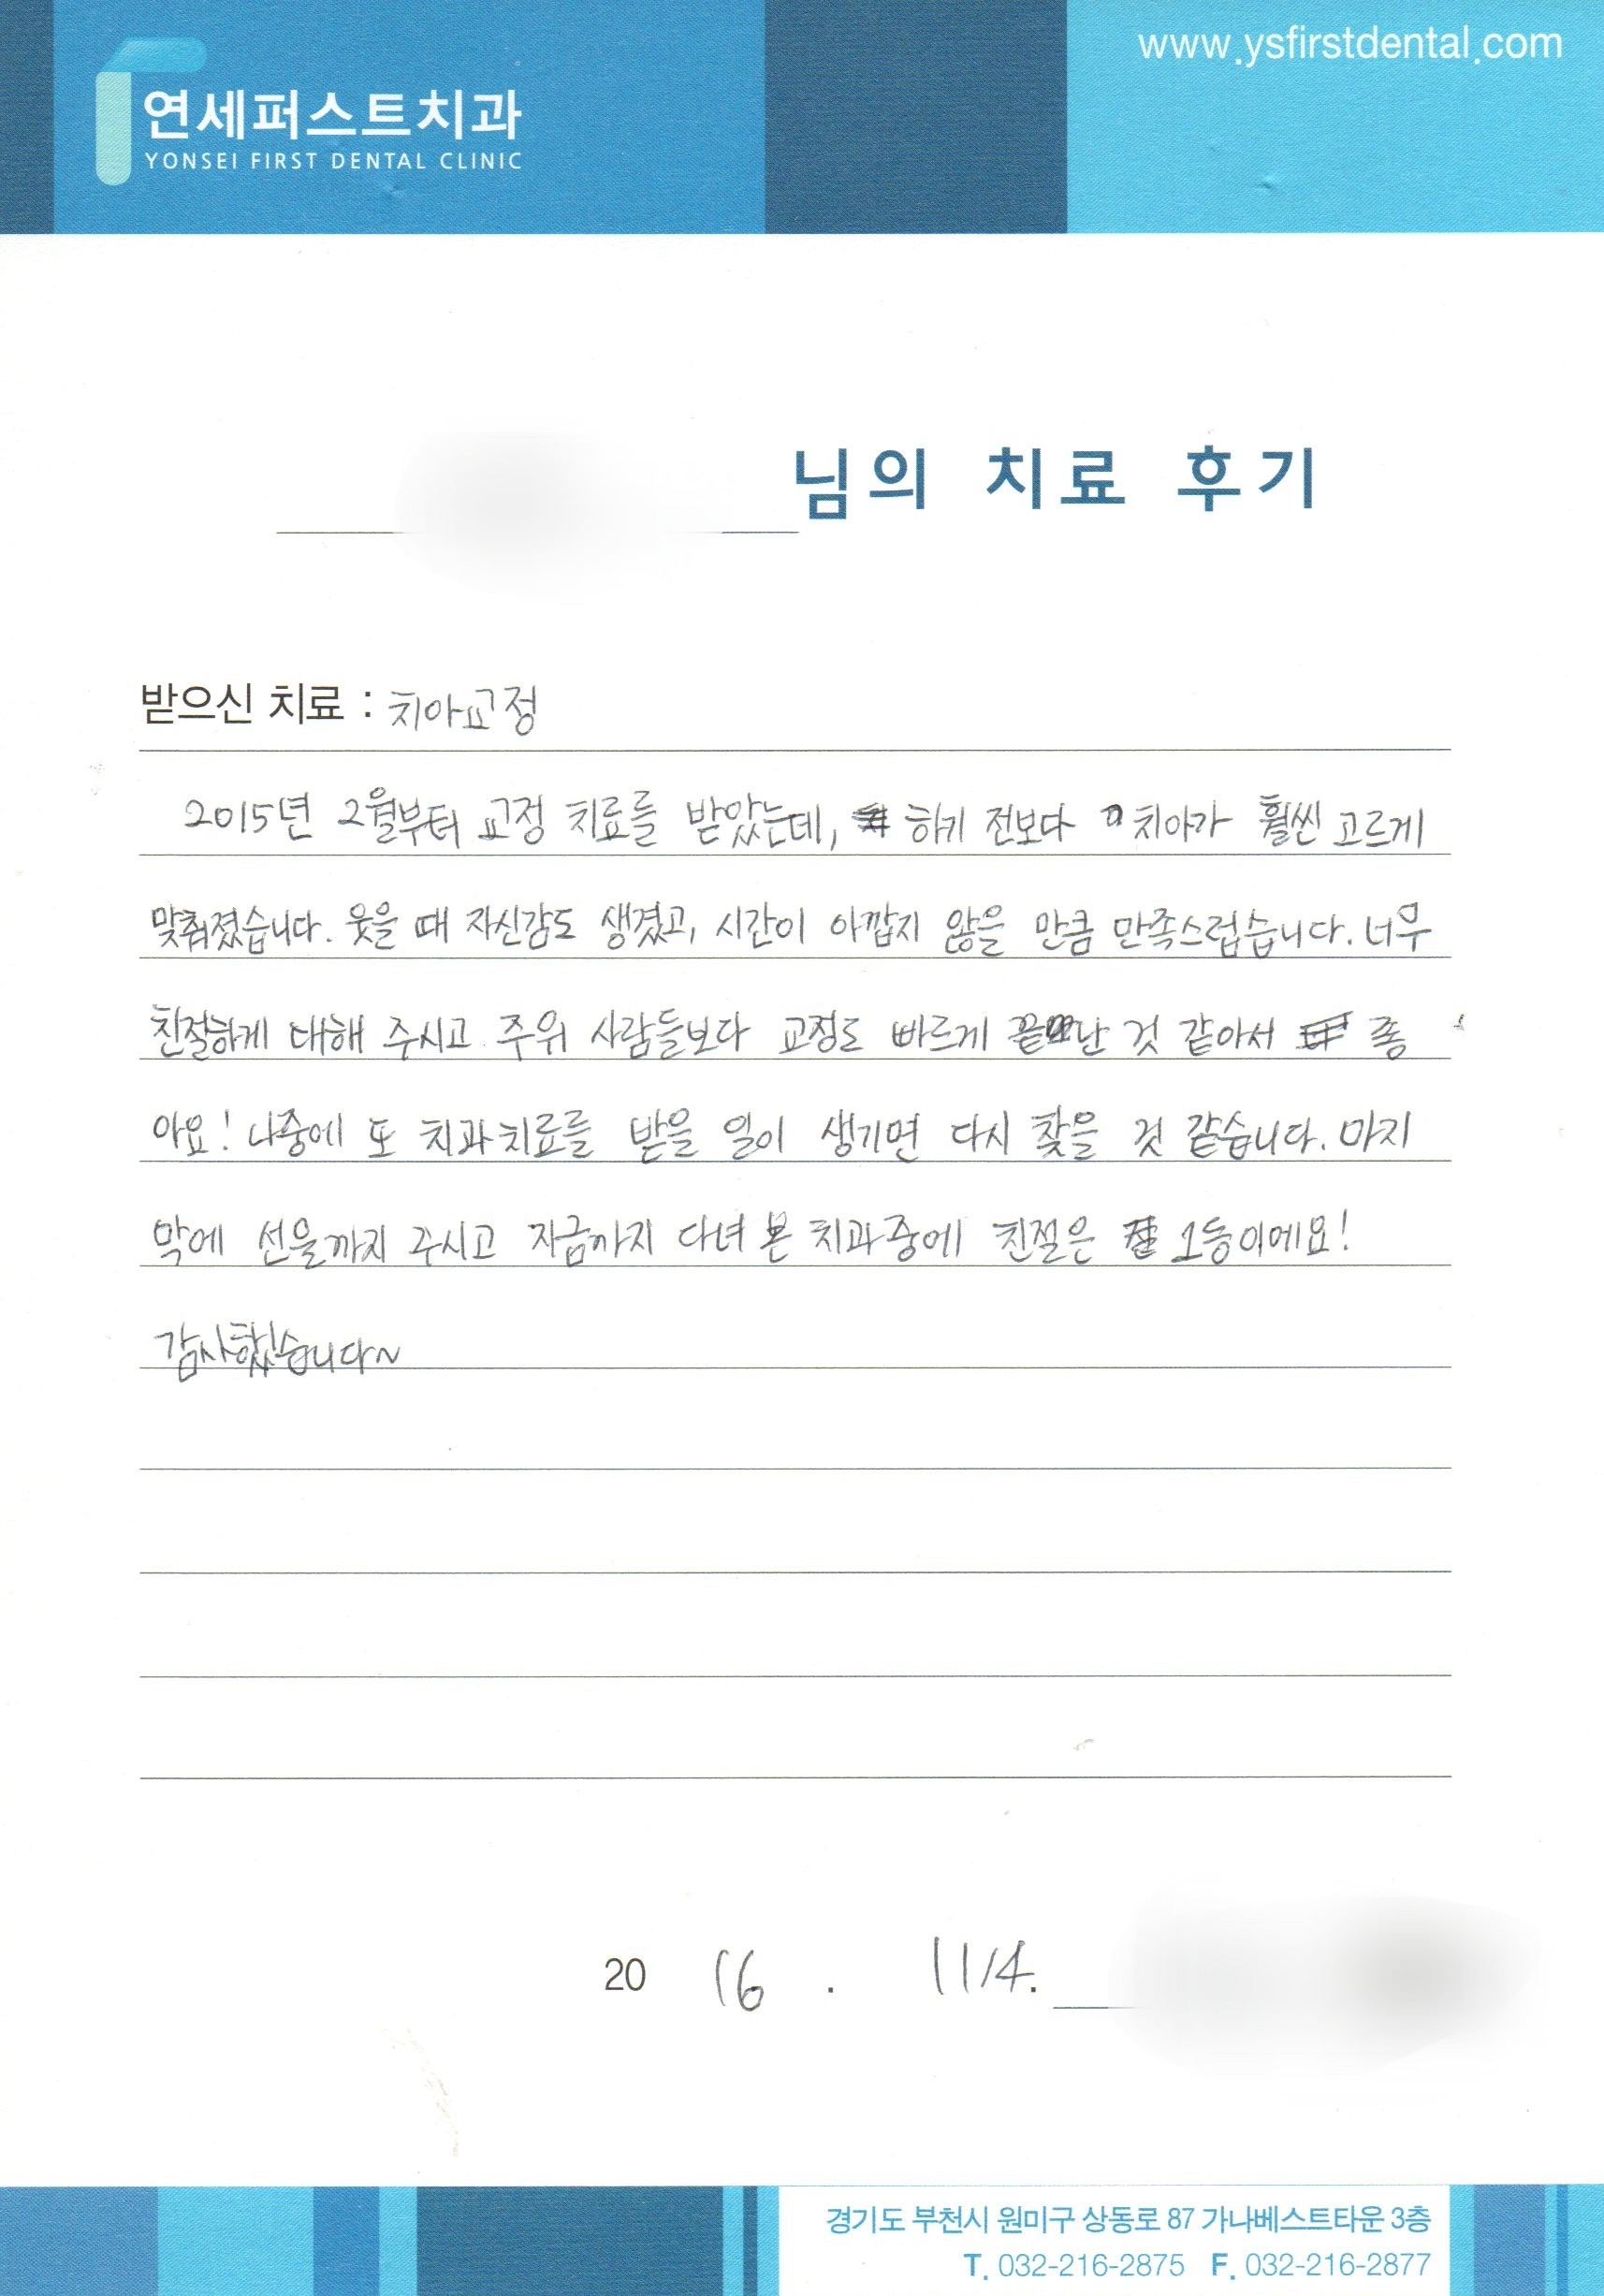 www.ysfirstdental.com
연세퍼스트치과
YONSEI FIRST DENTAL CLINIC
님의 치료 후기
받으신 치료 : 치아교정
2015년 2월부터 교정 치료를 받았는데, 하기 전보다 치아가 훨씬 고르게
맞춰졌습니다. 웃을 때 자신감도 생겼고, 시간이 아깝지 않을 만큼 만족스럽습니다. 너무
친절하게 대해 주시고 주위 사람들보다 교정도 빠르게 끝난 것 같아서 좋
아요! 나중에 또 치과치료를 받을 일이 생기면 다시 찾을 것 같습니다. 마지
막에 선물까지 주시고 지금까지 다녀 본 치과중에 친절은 1등이에요!
감사했습니다~
20 16 . 11/4.
경기도 부천시 원미구 상동로 87 가나베스트타운 3층
T. 032-216-2875 F. 032-216-2877